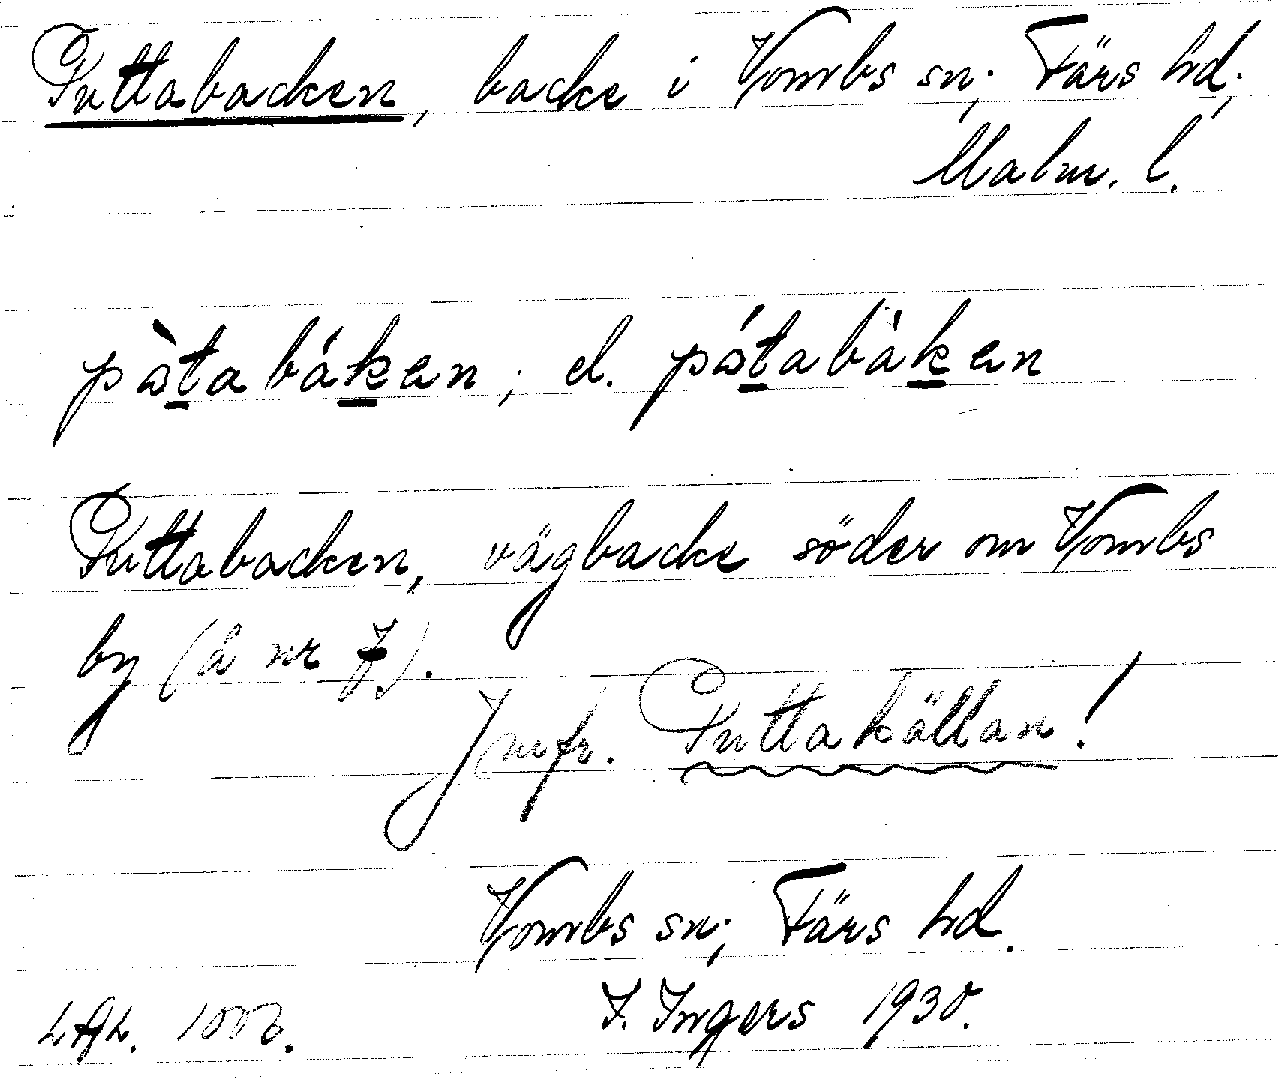 Puttabacken, backe i Vombs sn; Färs hd;
Malm. l.
pàtabáken; el. pátabàken
Puttabacken, vägbacke söder om Vombs
by (å nr 7).
Jmfr. Puttakällan!
Vombs sn; Färs hd.
I. Ingers 1930.